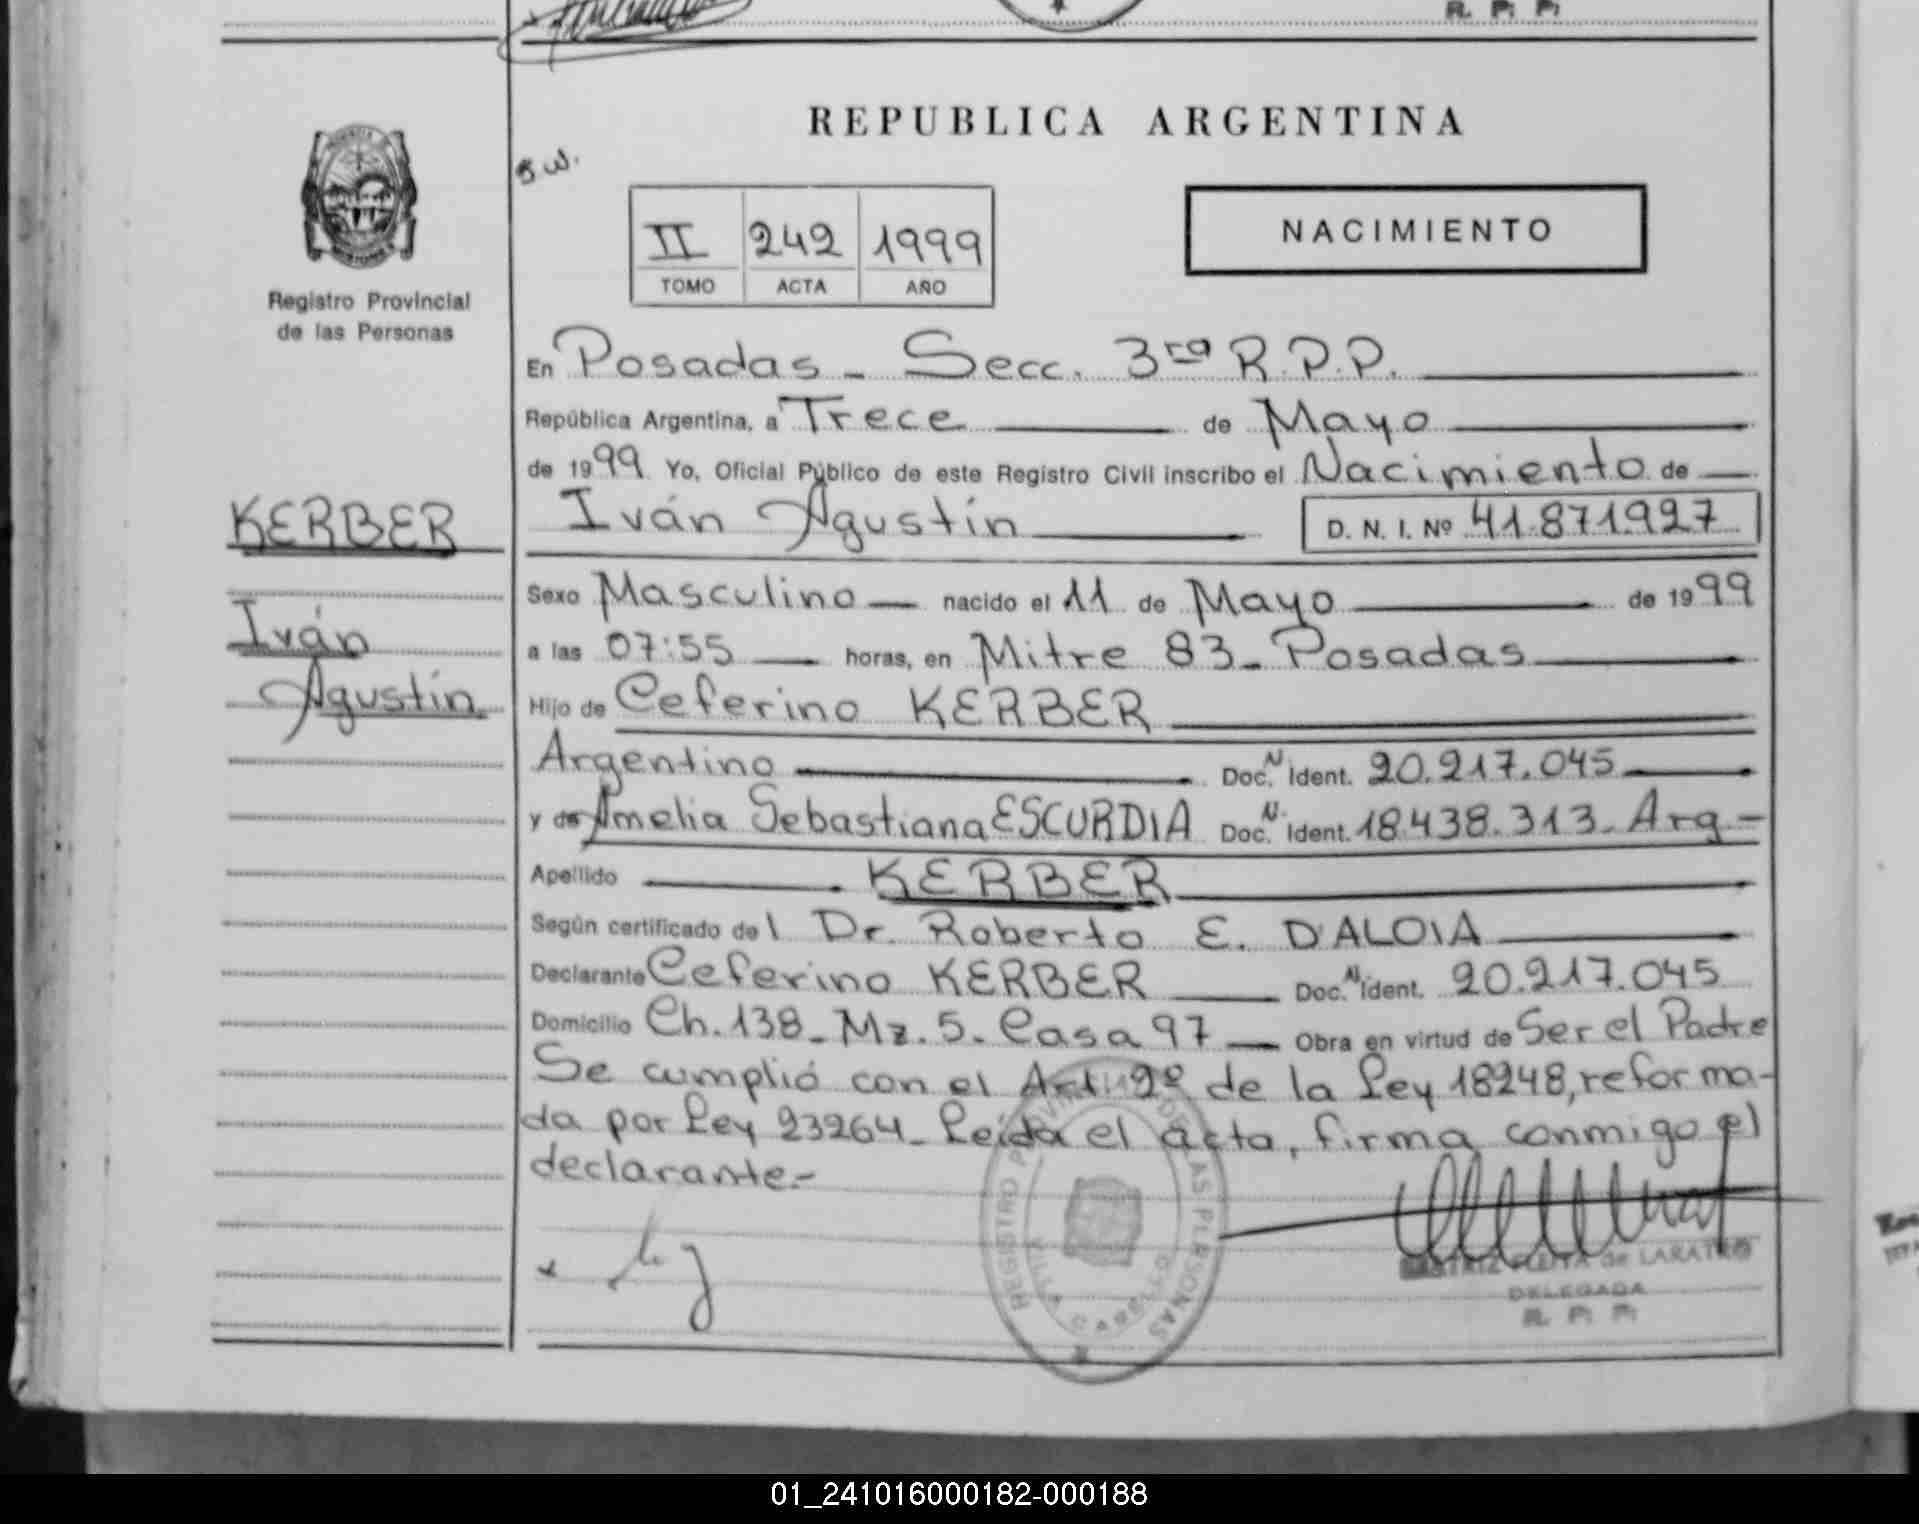 R. P. P.
REPUBLICA ARGENTINA
B W.
II 242 1999
TOMO ACTA AÑO
NACIMIENTO
Registro Provincial
de las Personas
KERBER
Iván
Agustín
En Posadas - Secc. 3ra R.P.P.
República Argentina, a Trece de Mayo
de 1999 Yo, Oficial Público de este Registro Civil inscribo el Nacimiento de
Iván Agustín D. N. I. Nº 41.871.927
Sexo Masculino nacido el 11 de Mayo de 1999
a las 07:55 horas, en Mitre 83 - Posadas
Hijo de Ceferino KERBER
Argentino Doc. N Ident. 20.217.045
y de Amelia Sebastiana ESCURDIA Doc. N. Ident. 18.438.313. Arg-
Apellido KERBER
Según certificado del Dr. Roberto E. D'ALOIA
Declarante Ceferino KERBER Doc. N Ident. 20.217.045
Domicilio Ch. 138 - Mz. 5 - Casa 97 Obra en virtud de Ser el Padre
Se cumplió con el Art. 2º de la Ley 18248, reforma-
da por Ley 23264 - Leída el acta, firma conmigo el
declarante.-
REGISTRO PROVINCIAL DE LAS PERSONAS
VILLA CABELLO
BEATRIZ de LARATRO
DELEGADA
R. P. P.
01_241016000182-000188